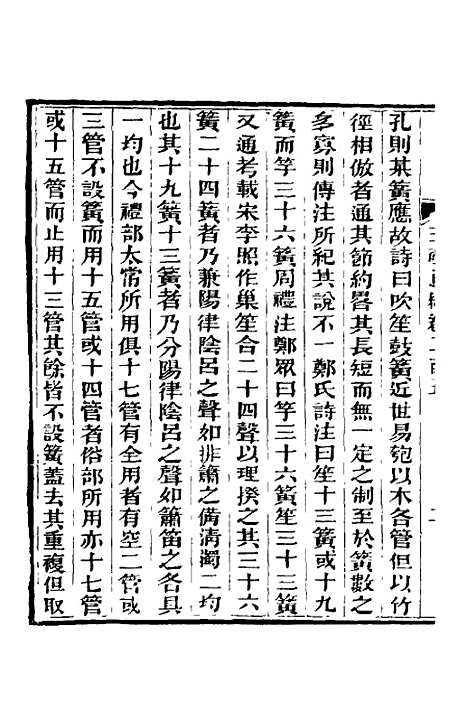 孔則某簧應故詩曰吹笙鼓簧近世易匏以木各管但以竹
徑相倣者通其節約畧其長短而無一定之制至於簧數之
多寡則傳注所紀其說不一鄭氏詩注曰笙十三簧或十九
簧而竽三十六簧周禮注鄭眾曰竽三十六簧笙三十三簧
又通考載宋李照作巢笙合二十四聲以理揆之其三十六
簧二十四簧者乃兼陽律陰呂之聲如排簫之備清濁二均
也其十九簧十三簧者乃分陽律陰呂之聲如簫笛之各具
一均也今禮部太常所用俱十七管有全用者有空二管或
三管不設簧而用十五管或十四管者俗部所用亦十七管
或十五管而止用十三管其餘皆不設簧蓋去其重複但取